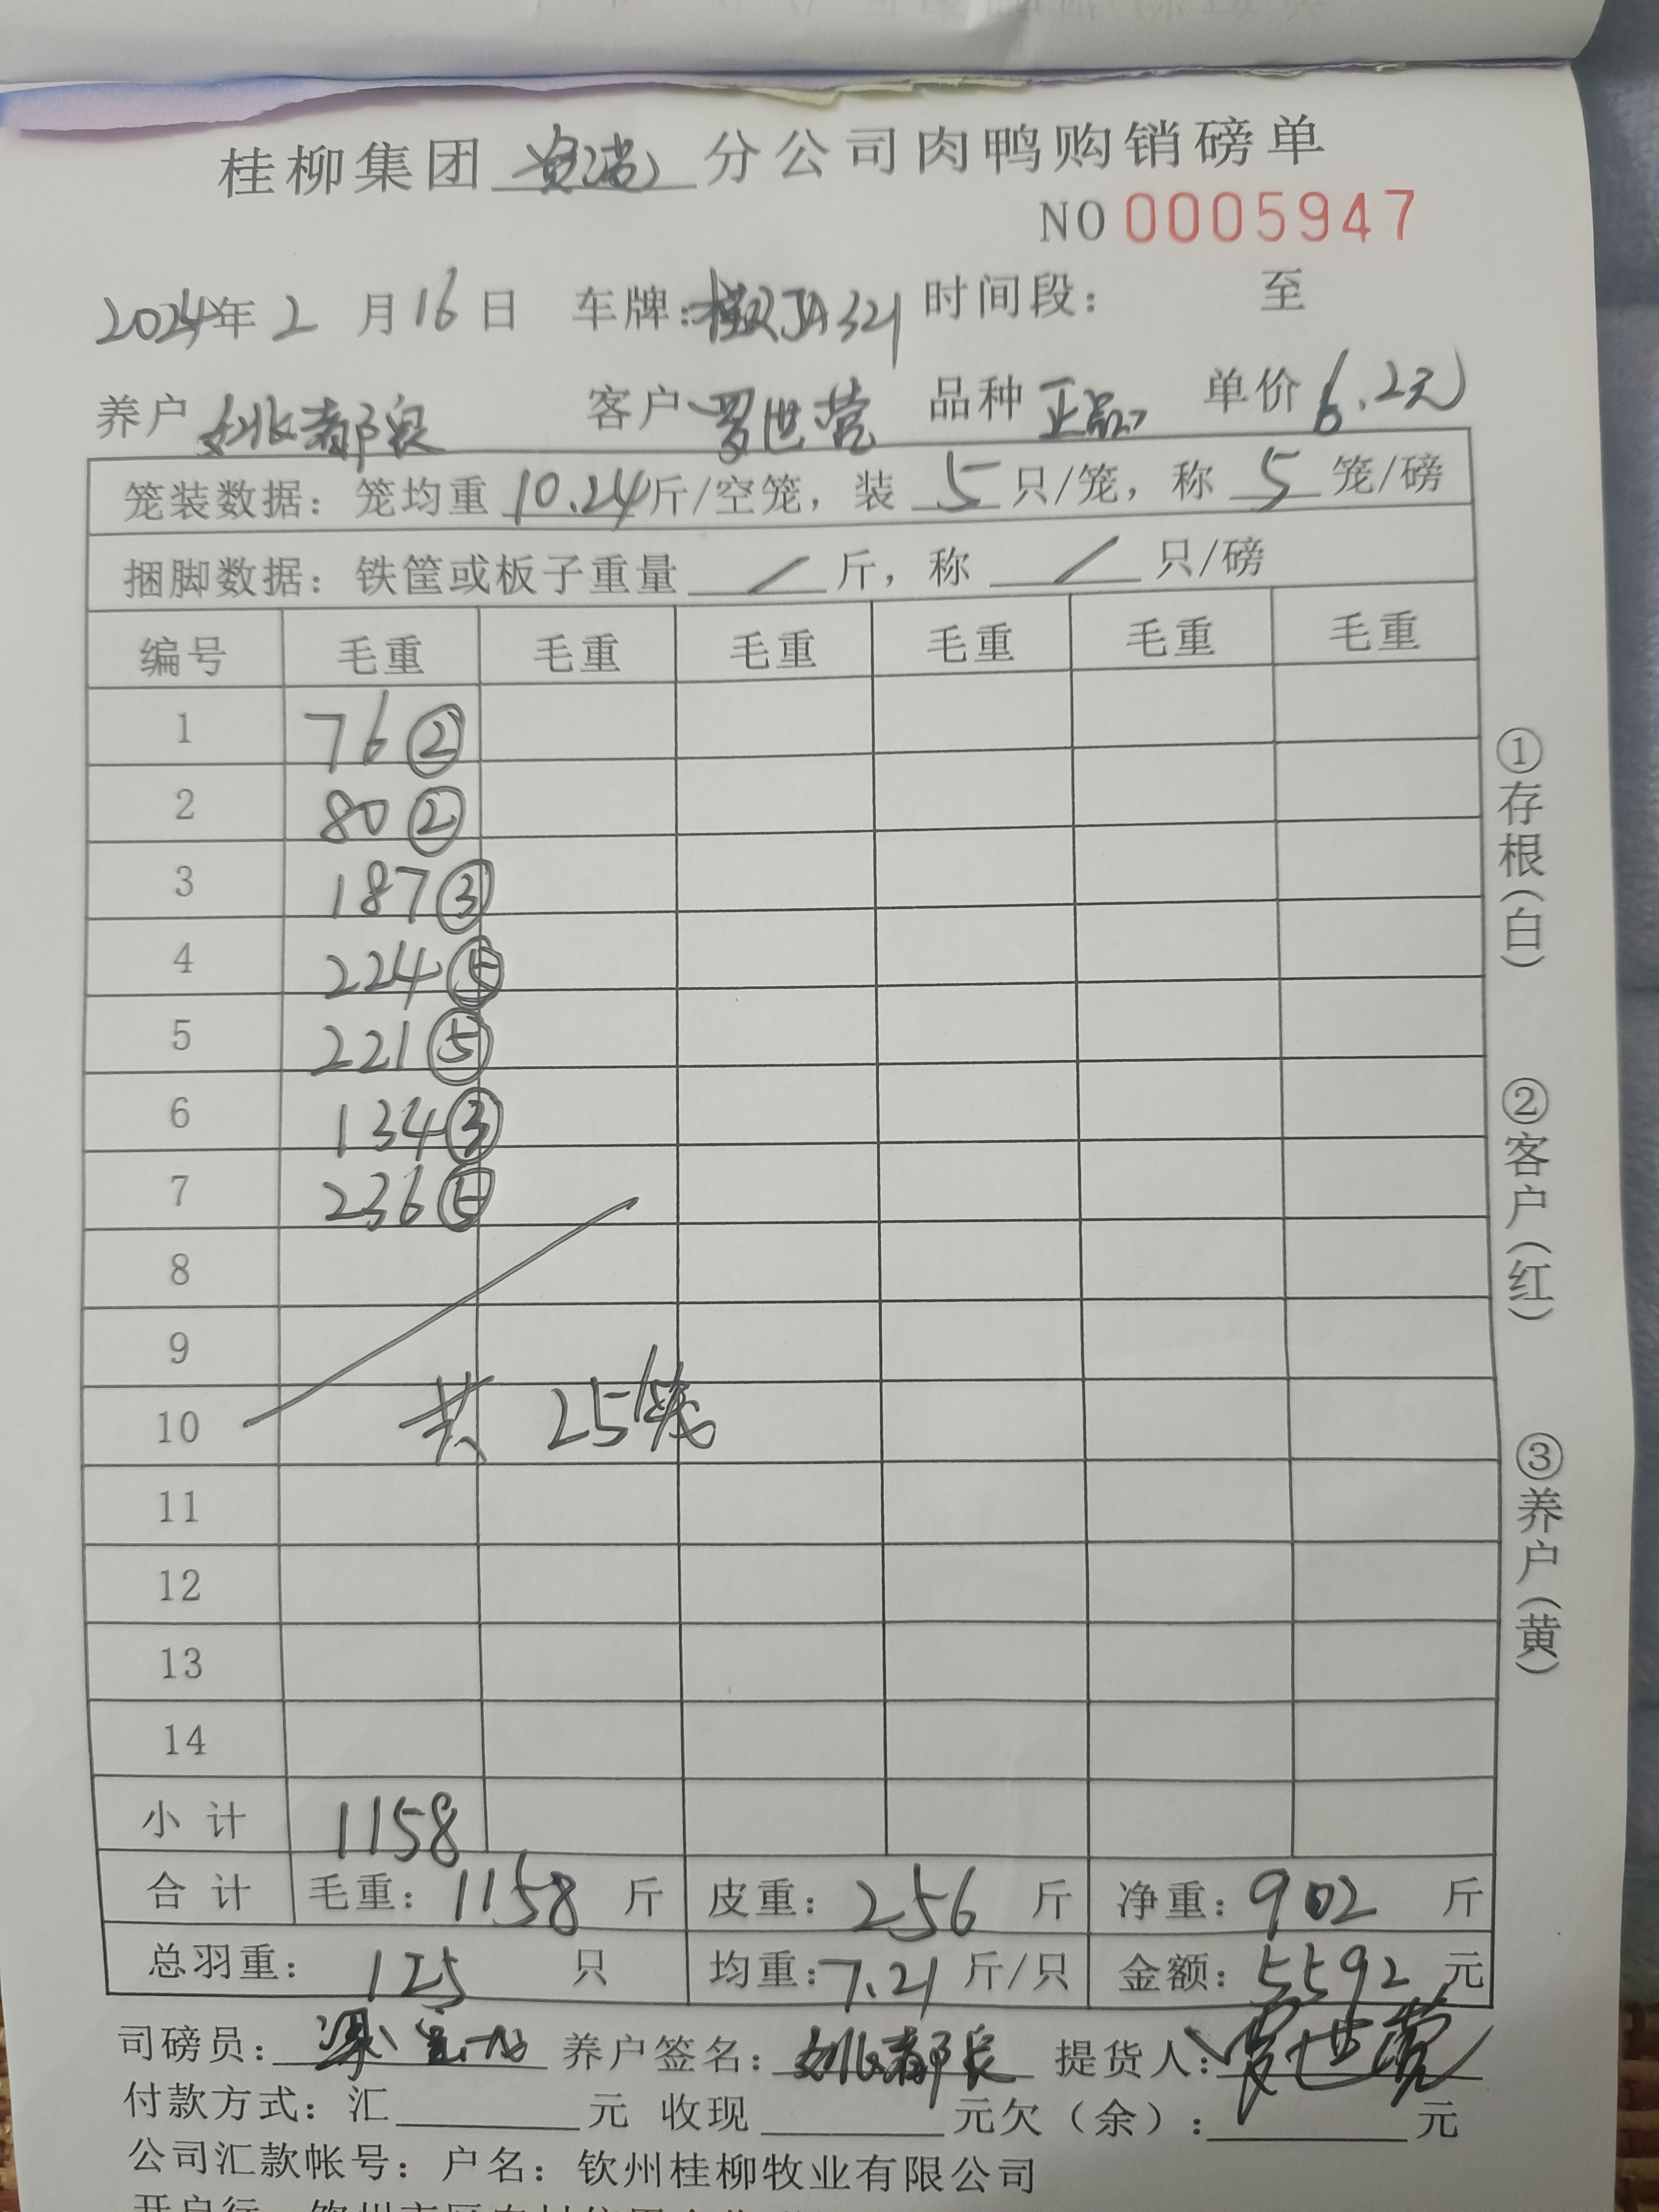 桂柳集团 分公司肉鸭购销磅单
NO 0005947
2024年2月16日 车牌: JA321 时间段: 至
养户 姚都良 客户 罗世营 品种 正品 单价 6.2元
笼装数据: 笼均重 10.24斤/空笼, 装 5 只/笼, 称 5 笼/磅
捆脚数据: 铁筐或板子重量 / 斤, 称 / 只/磅
编号 毛重 毛重 毛重 毛重 毛重 毛重
1 76 ②
2 80 ②
3 187 ③
4 224 ⑤
5 221 ⑤
6 134 ③
7 236 ⑤
8
9
10 共 25笼
11
12
13
14
小计 1158
合计 毛重: 1158 斤 皮重: 256 斤 净重: 902 斤
总羽重: 125 只 均重: 7.21 斤/只 金额: 5592 元
司磅员: 养户签名: 姚都良 提货人: 罗世营
付款方式: 汇 元 收现 元欠(余): 元
公司汇款帐号: 户名: 钦州桂柳牧业有限公司
①存根(白)
②客户(红)
③养户(黄)